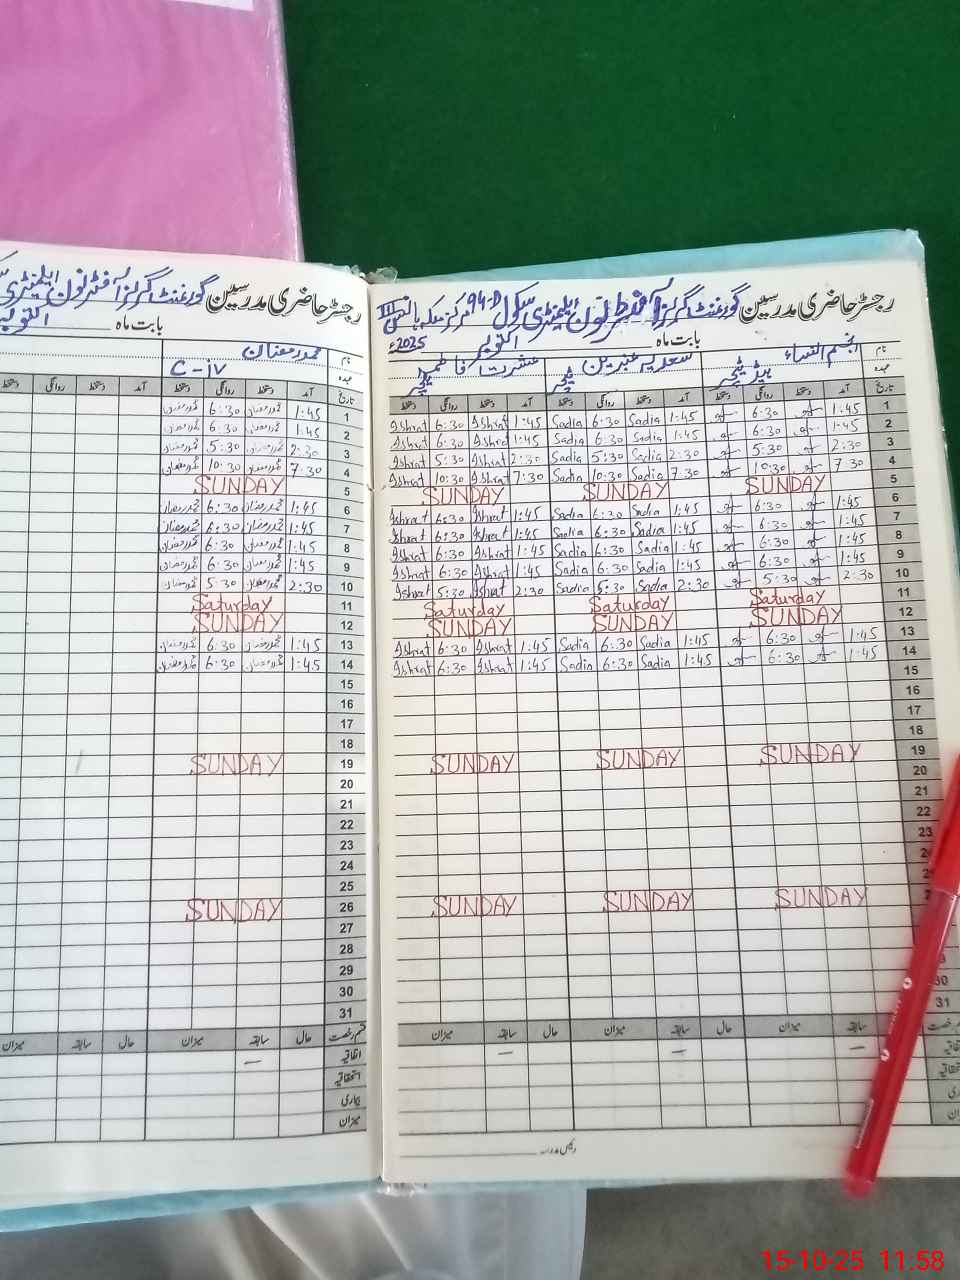 رجسٹر حاضری مدرسین گورنمنٹ گرلز آفٹر نون ایلیمنٹری سکول 94-D مرکز ملکہ ہانس III
بابت ماہ اکتوبر 2025ء
نام انجم النساء سعدیہ عنبرین عشرت فاطمہ
عہدہ ہیڈ ٹیچر ٹیچر ٹیچر
تاریخ آمد دستخط روانگی دستخط آمد دستخط روانگی دستخط آمد دستخط روانگی دستخط
1 1:45 6:30 1:45 Sadia 6:30 Sadia 1:45 Ishrat 6:30 Ishrat
2 1:45 6:30 1:45 Sadia 6:30 Sadia 1:45 Ishrat 6:30 Ishrat
3 2:30 5:30 2:30 Sadia 5:30 Sadia 2:30 Ishrat 5:30 Ishrat
4 7:30 10:30 7:30 Sadia 10:30 Sadia 7:30 Ishrat 10:30 Ishrat
5 SUNDAY SUNDAY SUNDAY
6 1:45 6:30 1:45 Sadia 6:30 Sadia 1:45 Ishrat 6:30 Ishrat
7 1:45 6:30 1:45 Sadia 6:30 Sadia 1:45 Ishrat 6:30 Ishrat
8 1:45 6:30 1:45 Sadia 6:30 Sadia 1:45 Ishrat 6:30 Ishrat
9 1:45 6:30 1:45 Sadia 6:30 Sadia 1:45 Ishrat 6:30 Ishrat
10 2:30 5:30 2:30 Sadia 5:30 Sadia 2:30 Ishrat 5:30 Ishrat
11 Saturday Saturday Saturday
12 SUNDAY SUNDAY SUNDAY
13 1:45 6:30 1:45 Sadia 6:30 Sadia 1:45 Ishrat 6:30 Ishrat
14 1:45 6:30 1:45 Sadia 6:30 Sadia 1:45 Ishrat 6:30 Ishrat
15
16
17
18
19 SUNDAY SUNDAY SUNDAY
20
21
22
23
SUNDAY SUNDAY SUNDAY
31
حال سابقہ میزان حال سابقہ میزان حال سابقہ میزان
رئیس مدرسہ
رجسٹر حاضری مدرسین گورنمنٹ گرلز آفٹر نون ایلیمنٹری
بابت ماہ اکتوبر
نام محمد رمضان
عہدہ C-IV
تاریخ آمد دستخط روانگی دستخط آمد دستخط روانگی دستخط
1 1:45 محمد رمضان 6:30 محمد رمضان
2 1:45 محمد رمضان 6:30 محمد رمضان
3 2:30 محمد رمضان 5:30 محمد رمضان
4 7:30 محمد رمضان 10:30 محمد رمضان
5 SUNDAY
6 1:45 محمد رمضان 6:30 محمد رمضان
7 1:45 محمد رمضان 6:30 محمد رمضان
8 1:45 محمد رمضان 6:30 محمد رمضان
9 1:45 محمد رمضان 6:30 محمد رمضان
10 2:30 محمد رمضان 5:30 محمد رمضان
11 Saturday
12 SUNDAY
13 1:45 محمد رمضان 6:30 محمد رمضان
14 1:45 محمد رمضان 6:30 محمد رمضان
15
16
17
18
19 SUNDAY
20
21
22
23
24
25
26 SUNDAY
27
28
29
30
31
قسم رخصت حال سابقہ میزان حال سابقہ میزان
اتفاقیہ
استحقاقیہ
بیماری
میزان
15-10-25 11.58